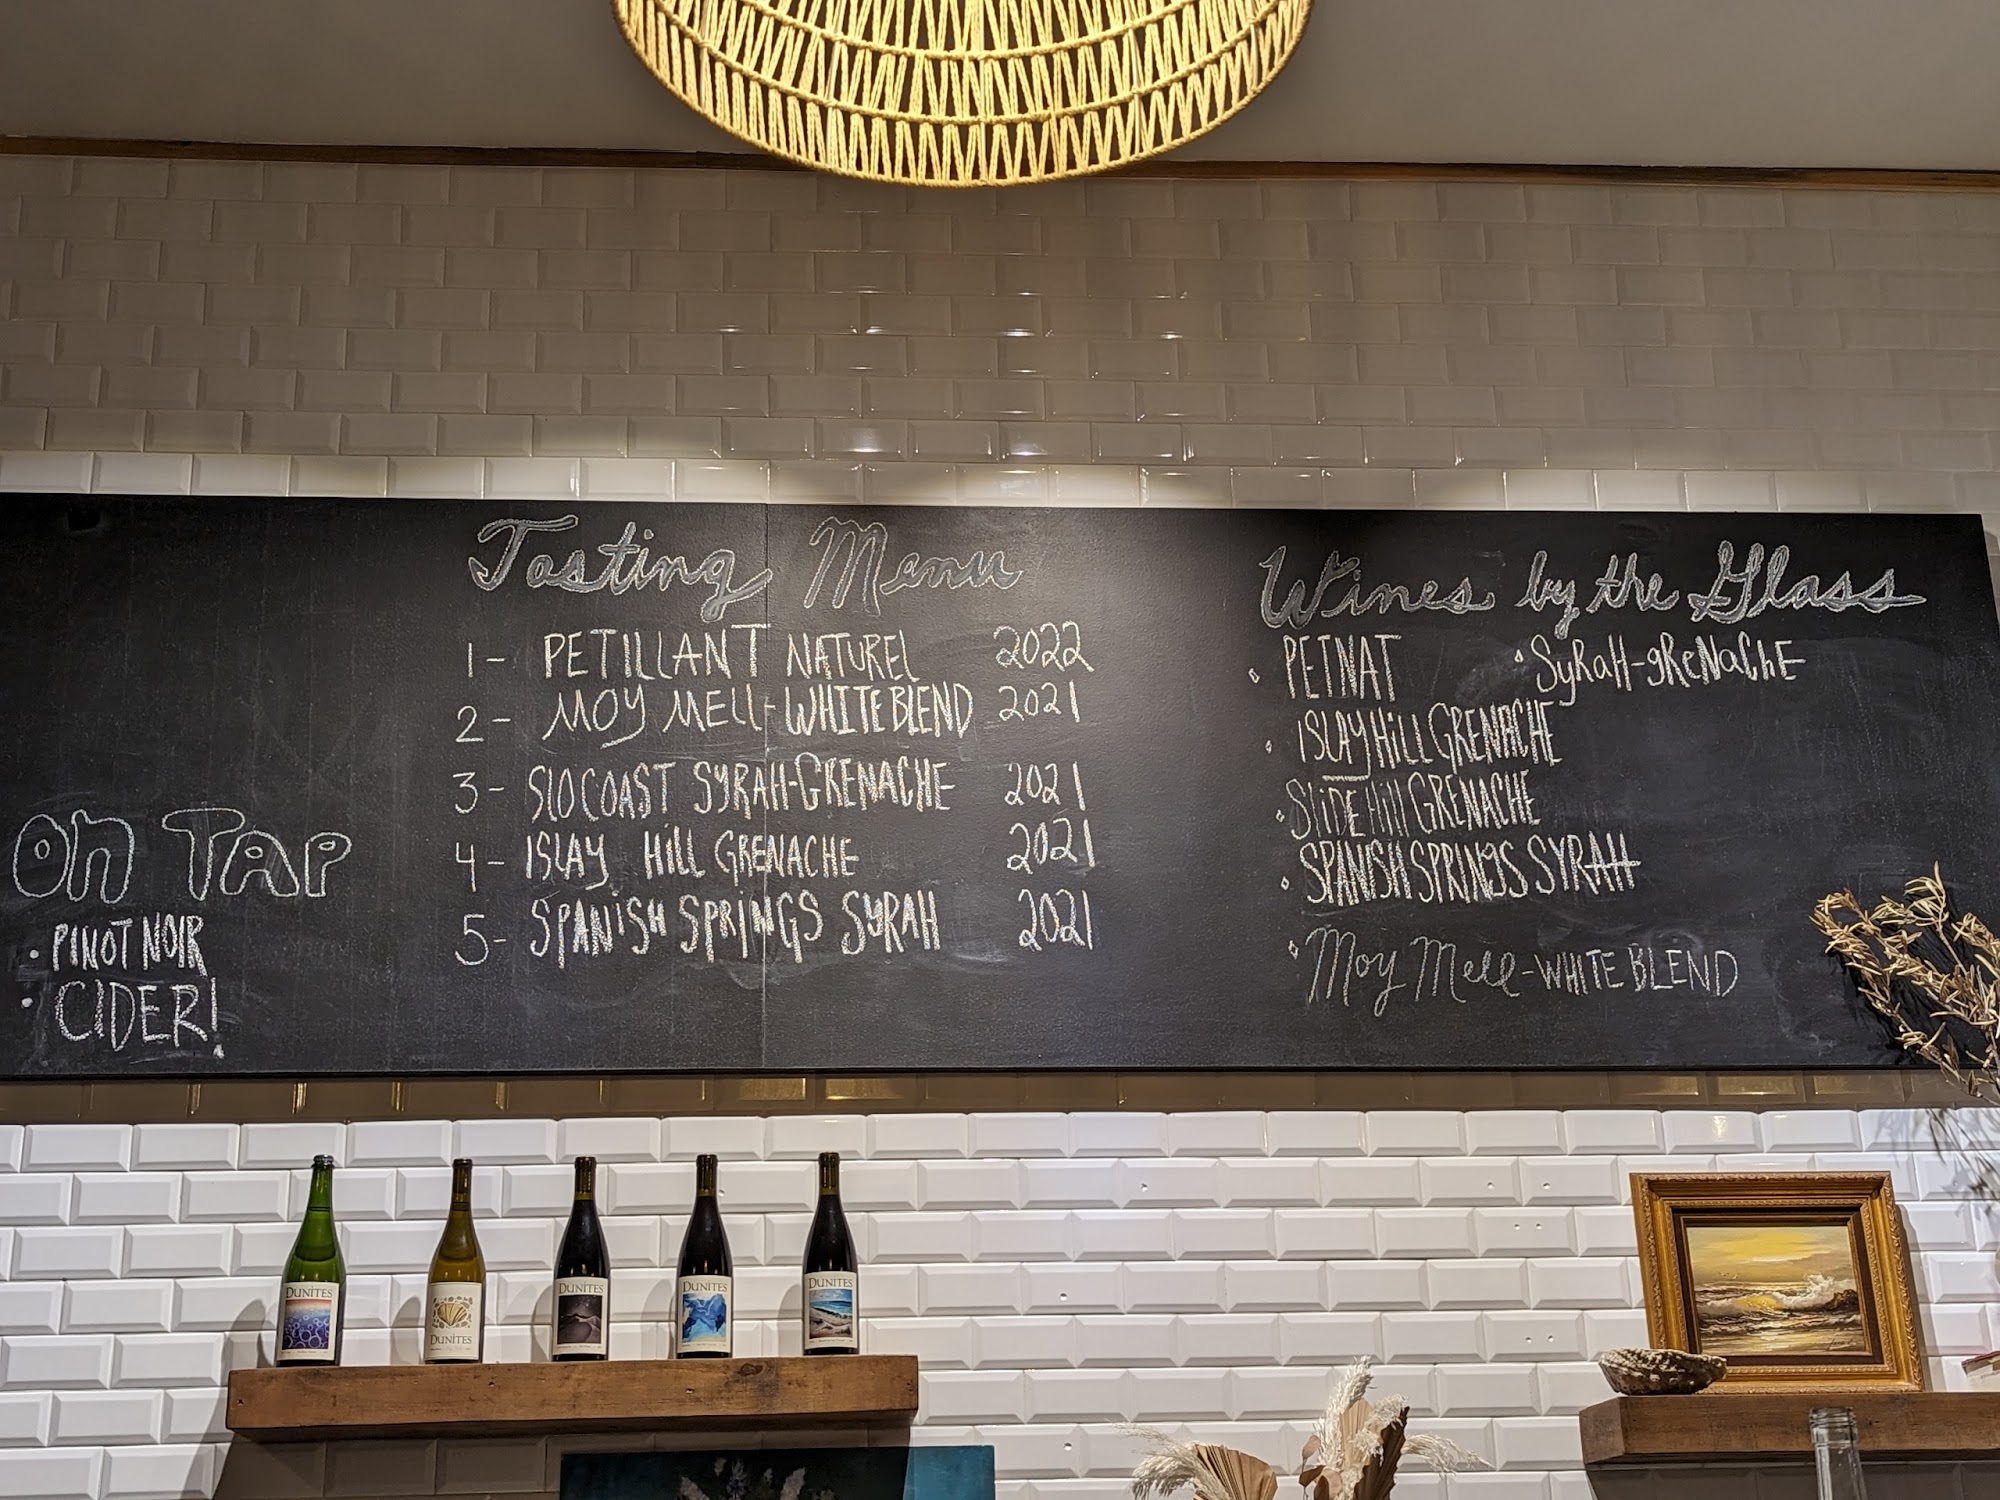 Tasting Menu
1- PETILLANT NATUREL 2022
2- MOY MELL-WHITE BLEND 2021
3- SLO COAST SYRAH-GRENACHE 2021
4- ISLAY HILL GRENACHE 2021
5- SPANISH SPRINGS SYRAH 2021
Wines by the Glass
PETNAT • SYRAH-GRENACHE
ISLAY HILL GRENACHE
SLIDE HILL GRENACHE
SPANISH SPRINGS SYRAH
Moy Mell-WHITE BLEND
ON TAP
• PINOT NOIR
• CIDER!
DUNITES
DUNITES
DUNITES
DUNITES
DUNITES